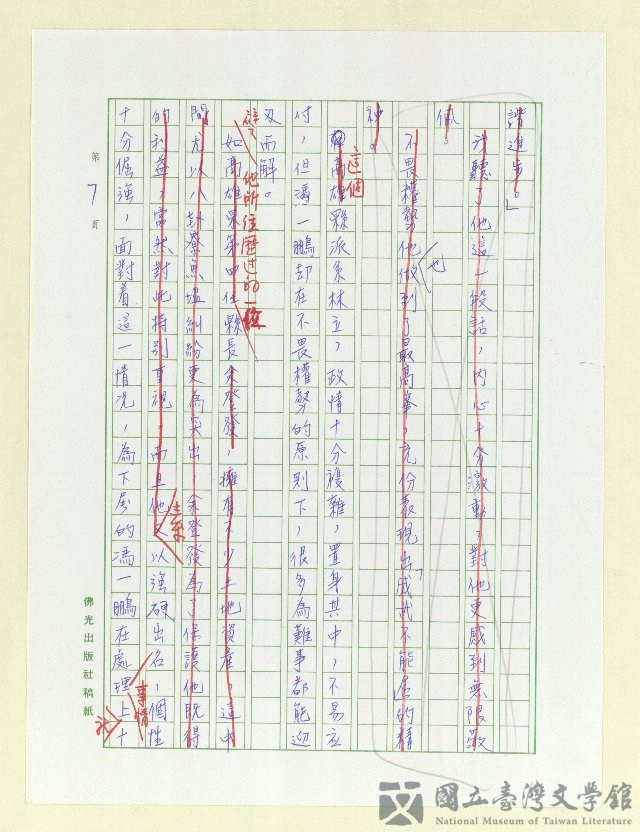 諸進步。」
我聽了他這一段話，內心十分激動，對他更感到無限敬
佩。
不畏權勢他做到了最高峯，充份表現出「威武不能屈的精
也
神。
這個
高雄縣派系林立，政情十分複雜，置身其中，不易應
付，但馮一鵬却在不畏權勢的原則下，很多為難事都能迎
刃而解。
他所經歷過的一
如高雄縣第四任縣長余登發，擁有不少土地資產，這中
間尤以八卦寮魚塭糾紛更為突出，余登發為了保護他既得
的利益，當然對此特別重視，而且他又以強硬出名，個性
十分倔強，面對着這一情況，為下屬的馮一鵬在處理上十
事情
第 7 頁
佛光出版社稿紙
國立臺灣文學館
National Museum of Taiwan Literature